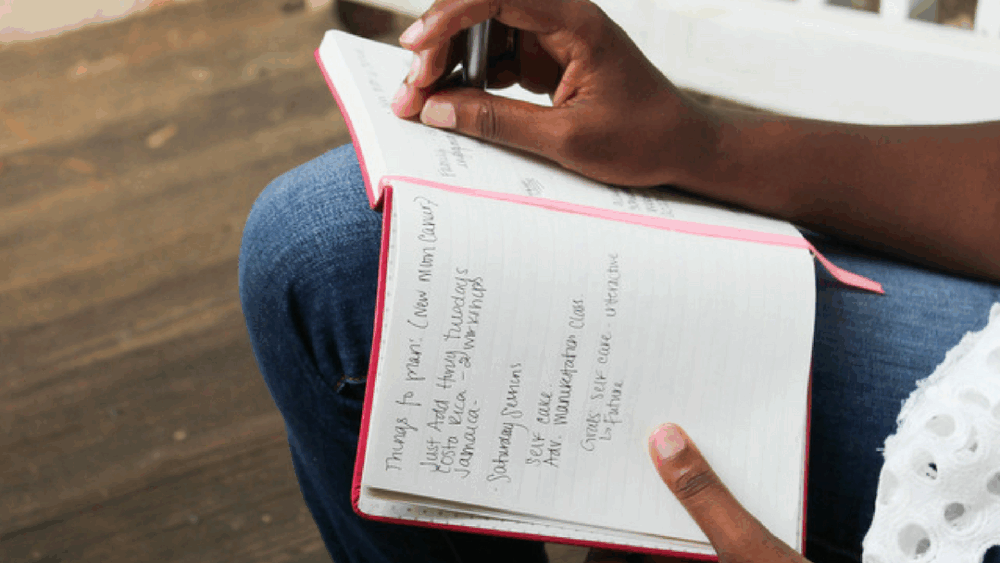 Things to plan: (New Moon Cancer)
Just Add Honey Tuesdays
Costa Rica - 2 workshops
Jamaica -
· Saturday Sessions
Self care.
Adv. Manifestation Class
Grabs self care - interactive
↳ Future